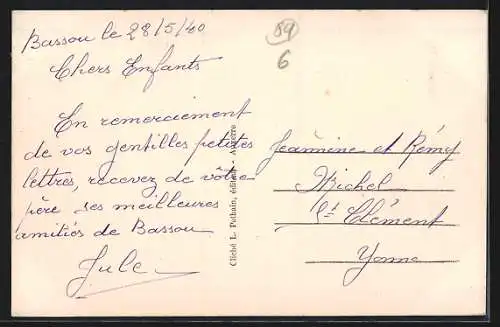 Bassou le 28/5/40
89
6
Chers Enfants
En remerciement
de vos gentilles petites
lettres, recevez de vôtre
père ses meilleures
amitiés de Bassou
Jule
Cliché L. Pethuin, édition - Auxerre
Jeannine et Rémy
Michel
St Clément
Yonne